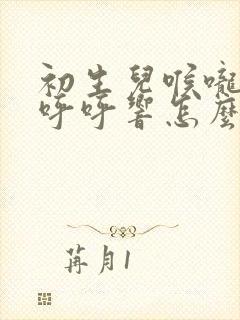 初生兒喉嚨
呼呼響怎麼
苒月1